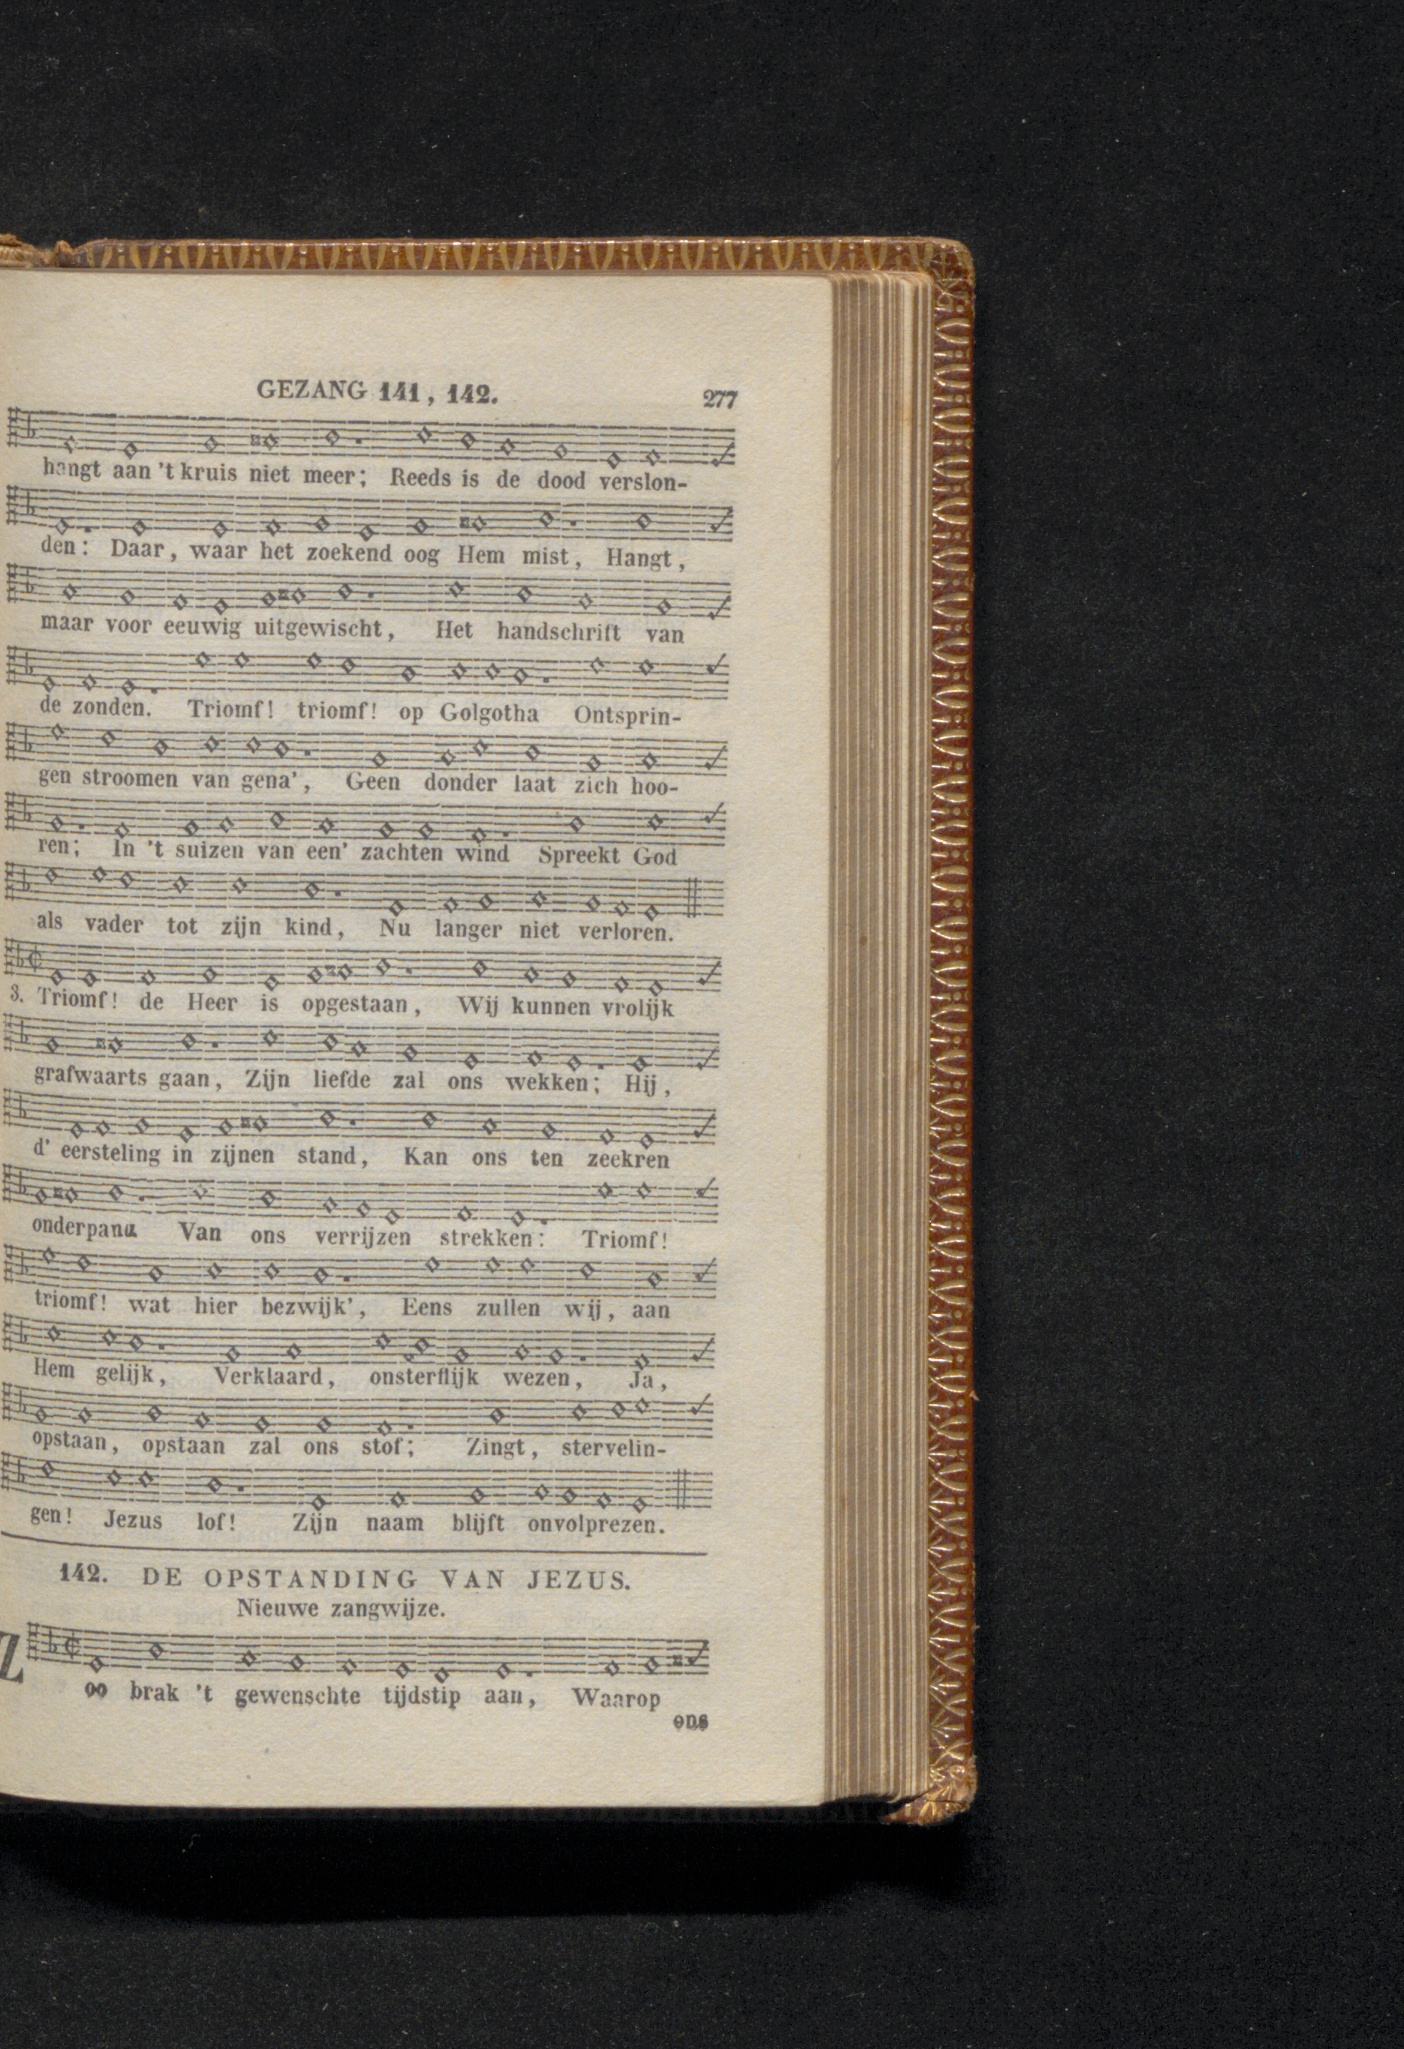 GEZANG 141, 142. 277
hangt aan 't kruis niet meer; Reeds is de dood verslon-
den: Daar, waar het zoekend oog Hem mist, Hangt,
maar voor eeuwig uitgewischt, Het handschrift van
de zonden. Triomf! triomf! op Golgotha Ontsprin-
gen stroomen van gena', Geen donder laat zich hoo-
ren; In 't suizen van een' zachten wind Spreekt God
als vader tot zijn kind, Nu langer niet verloren.
3. Triomf! de Heer is opgestaan, Wij kunnen vrolijk
grafwaarts gaan, Zijn liefde zal ons wekken; Hij,
d' eersteling in zijnen stand, Kan ons ten zeekren
onderpand Van ons verrijzen strekken: Triomf!
triomf! wat hier bezwijk', Eens zullen wij, aan
Hem gelijk, Verklaard, onsterflijk wezen, Ja,
opstaan, opstaan zal ons stof; Zingt, stervelin-
gen! Jezus lof! Zijn naam blijft onvolprezen.
142. DE OPSTANDING VAN JEZUS.
Nieuwe zangwijze.
Zoo brak 't gewenschte tijdstip aan, Waarop
ons